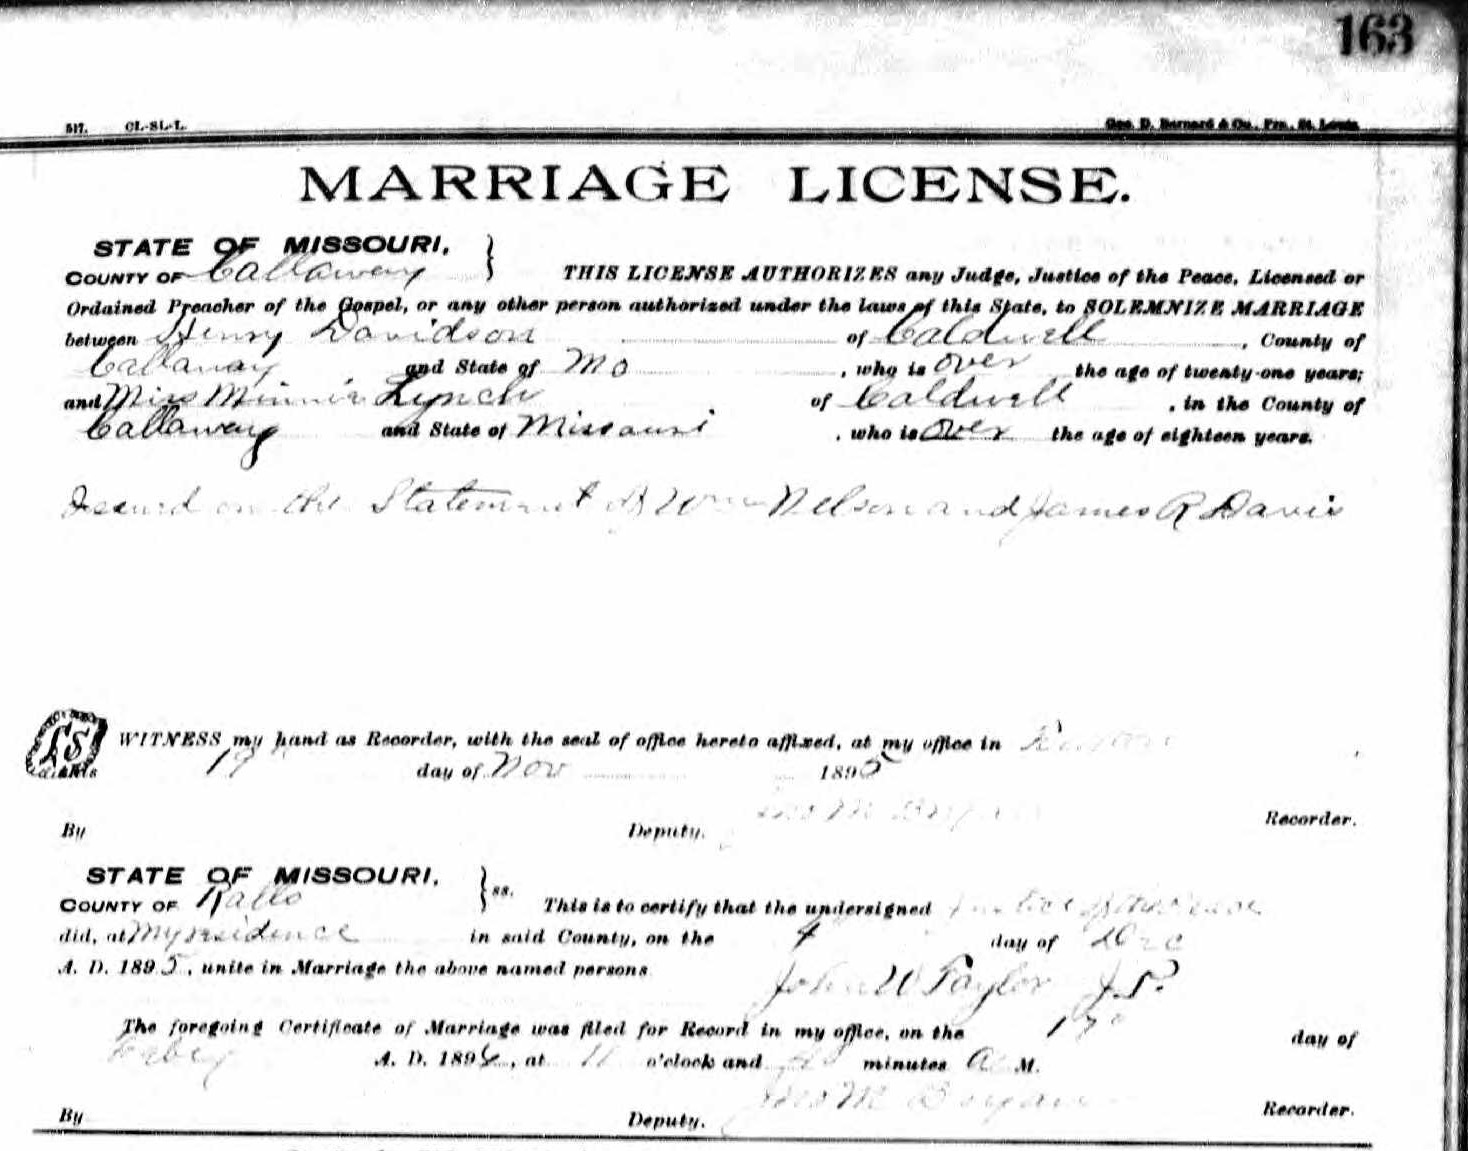 163
517. CL-SL-L. Geo. D. Barnard & Co., Prs., St. Louis
MARRIAGE LICENSE.
STATE OF MISSOURI,
COUNTY OF Callaway } THIS LICENSE AUTHORIZES any Judge, Justice of the Peace, Licensed or
Ordained Preacher of the Gospel, or any other person authorized under the laws of this State, to SOLEMNIZE MARRIAGE
between Henry Davidson of Caldwell, County of
Callaway and State of Mo, who is over the age of twenty-one years;
and Miss Minnie Lynch of Caldwell, in the County of
Callaway and State of Missouri, who is over the age of eighteen years.
Issued on the Statement of Wm Nelson and James R Davis
LS
WITNESS my hand as Recorder, with the seal of office hereto affixed, at my office in
19th day of Nov 1895
Jno M Bryan
By Deputy. Recorder.
STATE OF MISSOURI,
COUNTY OF Ralls } ss. This is to certify that the undersigned Justice of the Peace
did, at My residence in said County, on the 4 day of Dec
A. D. 1895, unite in Marriage the above named persons
John W Taylor J.P.
The foregoing Certificate of Marriage was filed for Record in my office, on the day of
Feby A. D. 1896, at 11 o'clock and minutes A M.
Jno M Bryan
By Deputy. Recorder.